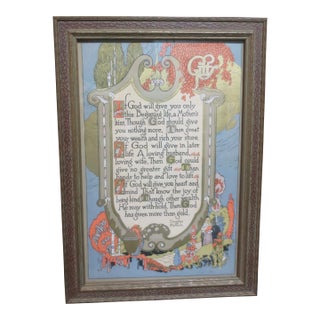 Gifts
If God will give you only
this: Beginning life, a Mother's
kiss, Though God should give
you nothing more, Thou great
your wealth and rich your store.
If God will give in later
life A loving husband,
loving wife, Then God could
give no greater gift Than
hands to help and love to lift.
If God will give you heart and
mind That know the joy of
being kind, Though other wealth
He may withhold, Then God
has given more than gold.